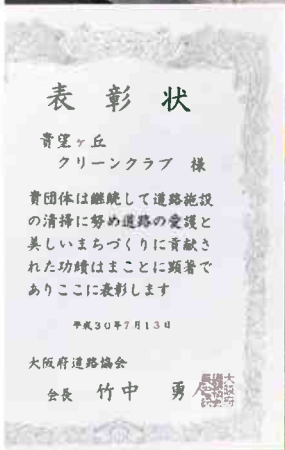 表彰状
貴望ヶ丘
クリーンクラブ 様
貴団体は継続して道路施設
の清掃に努め道路の愛護と
美しいまちづくりに貢献さ
れた功績はまことに顕著で
ありここに表彰します
平成30年7月13日
大阪府道路協会
会長 竹中 勇人